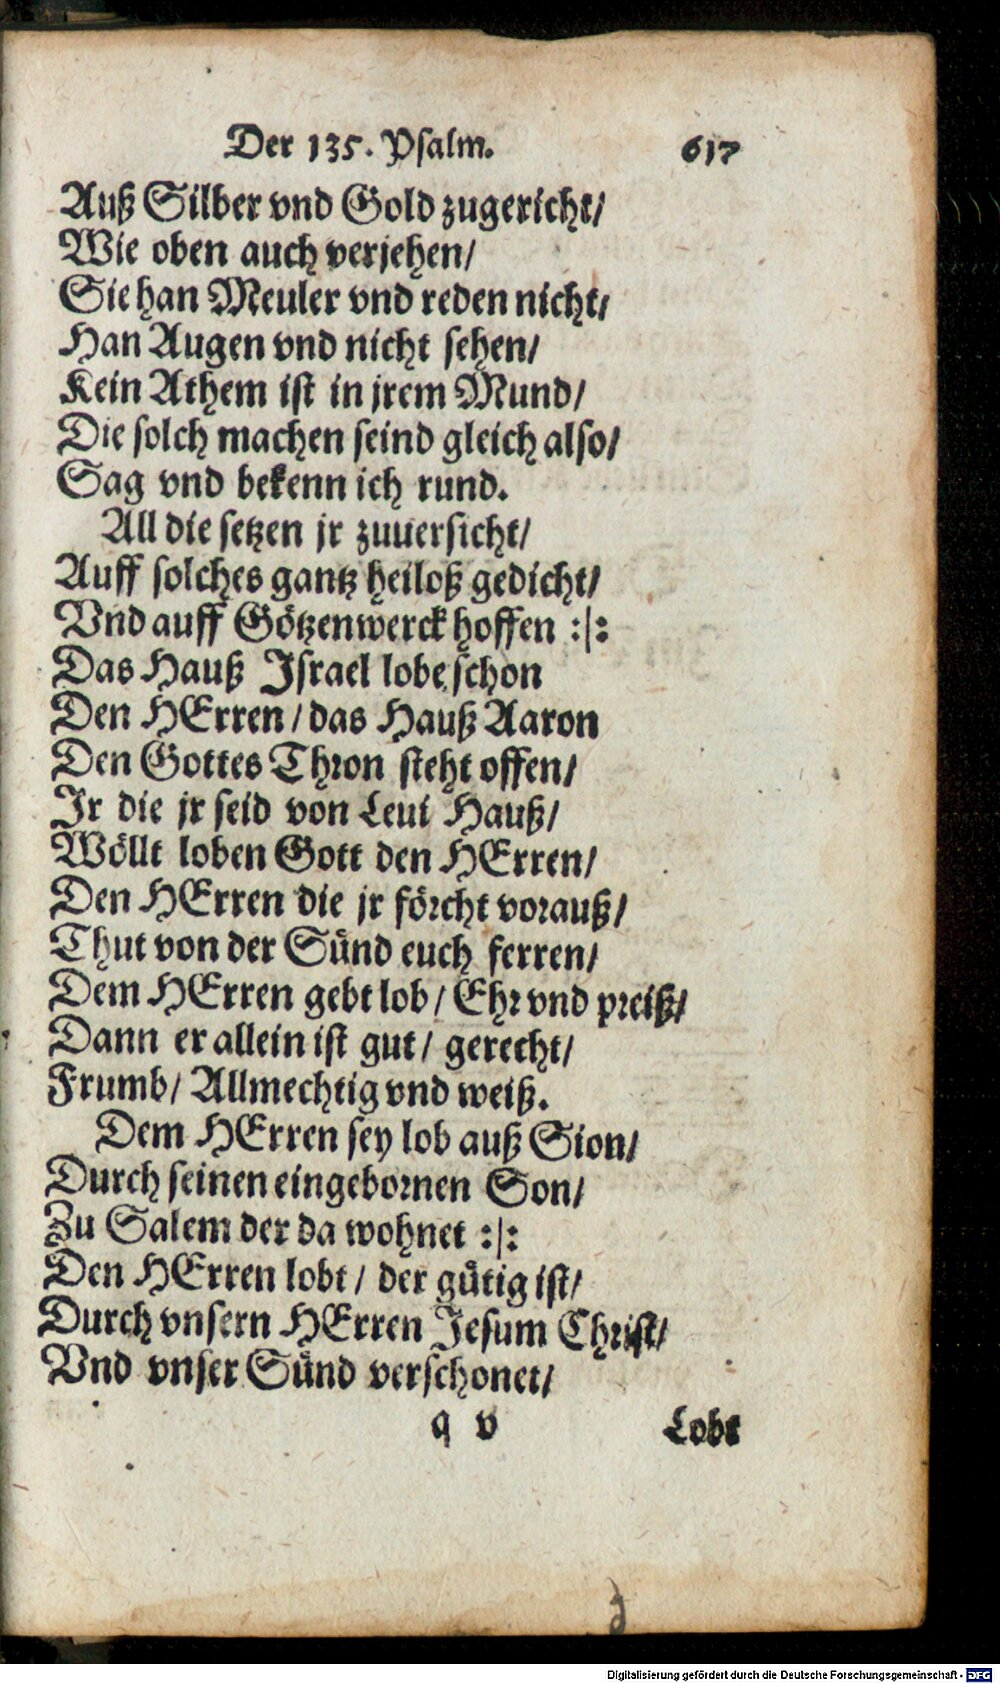 Der 135. Psalm. 617
Auß Silber vnd Gold zugericht/
Wie oben auch verjehen/
Sie han Meuler vnd reden nicht/
Han Augen vnd nicht sehen/
Kein Athem ist in jrem Mund/
Die solch machen seind gleich also/
Sag vnd bekenn ich rund.
All die setzen jr zuuersicht/
Auff solches gantz heiloß gedicht/
Vnd auff Götzenwerck hoffen :/:
Das Hauß Israel lobe schon
Den HErren/ das Hauß Aaron
Den Gottes Thron steht offen/
Jr die jr seid von Leui Hauß/
Wöllt loben Gott den HErren/
Den HErren die jr förcht vorauß/
Thut von der Sünd euch ferren/
Dem HErren gebt lob/ Ehr vnd preiß/
Dann er allein ist gut/ gerecht/
Frumb/ Allmechtig vnd weiß.
Dem HErren sey lob auß Sion/
Durch seinen eingebornen Son/
Zu Salem der da wohnet :/:
Den HErren lobt/ der gütig ist/
Durch vnsern HErren Jesum Christ/
Vnd vnser Sünd verschonet/
q v Lobt
Digitalisierung gefördert durch die Deutsche Forschungsgemeinschaft - DFG